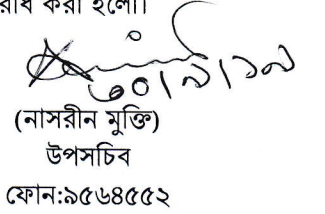 রাধ করা হলো।
৩০|৯|১৯
(নাসরীন মুক্তি)
উপসচিব
ফোন:৯৫৬৪৫৫২